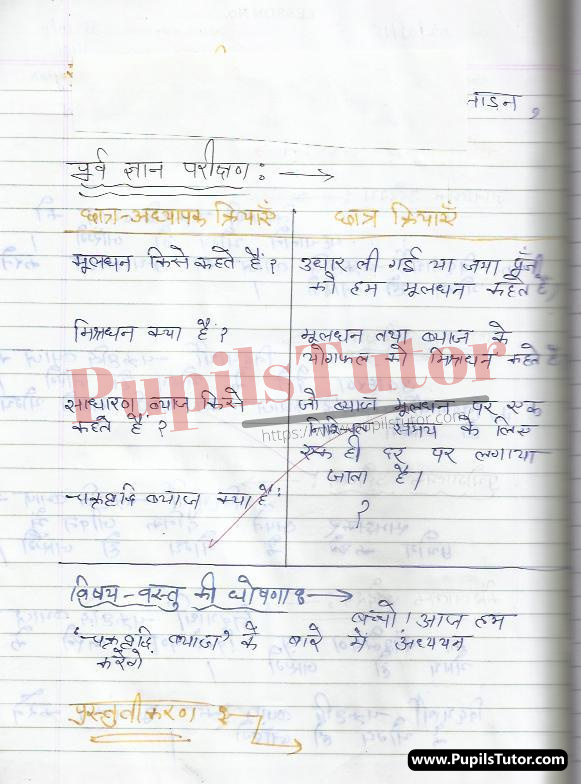 ताडन,
पूर्व ज्ञान परीक्षण : →
छात्र-अध्यापक क्रियाएँ
छात्र क्रियाएँ
मूलधन किसे कहते हैं ?
उधार ली गई या जमा पूँजी
को हम मूलधन कहते हैं
मिश्रधन क्या है ?
मूलधन तथा ब्याज के
योगफल को मिश्रधन कहते हैं
साधारण ब्याज किसे
कहते हैं ?
जो ब्याज मूलधन पर एक
निश्चित समय के लिए
एक ही दर पर लगाया
जाता है।
चक्रवृद्धि ब्याज क्या है ?
?
PupilsTutor
https://www.pupilstutor.com
विषय-वस्तु की घोषणा : →
बच्चो! आज हम
'चक्रवृद्धि ब्याज' के बारे में अध्ययन
करेंगे
प्रस्तुतीकरण :
www.PupilsTutor.Com